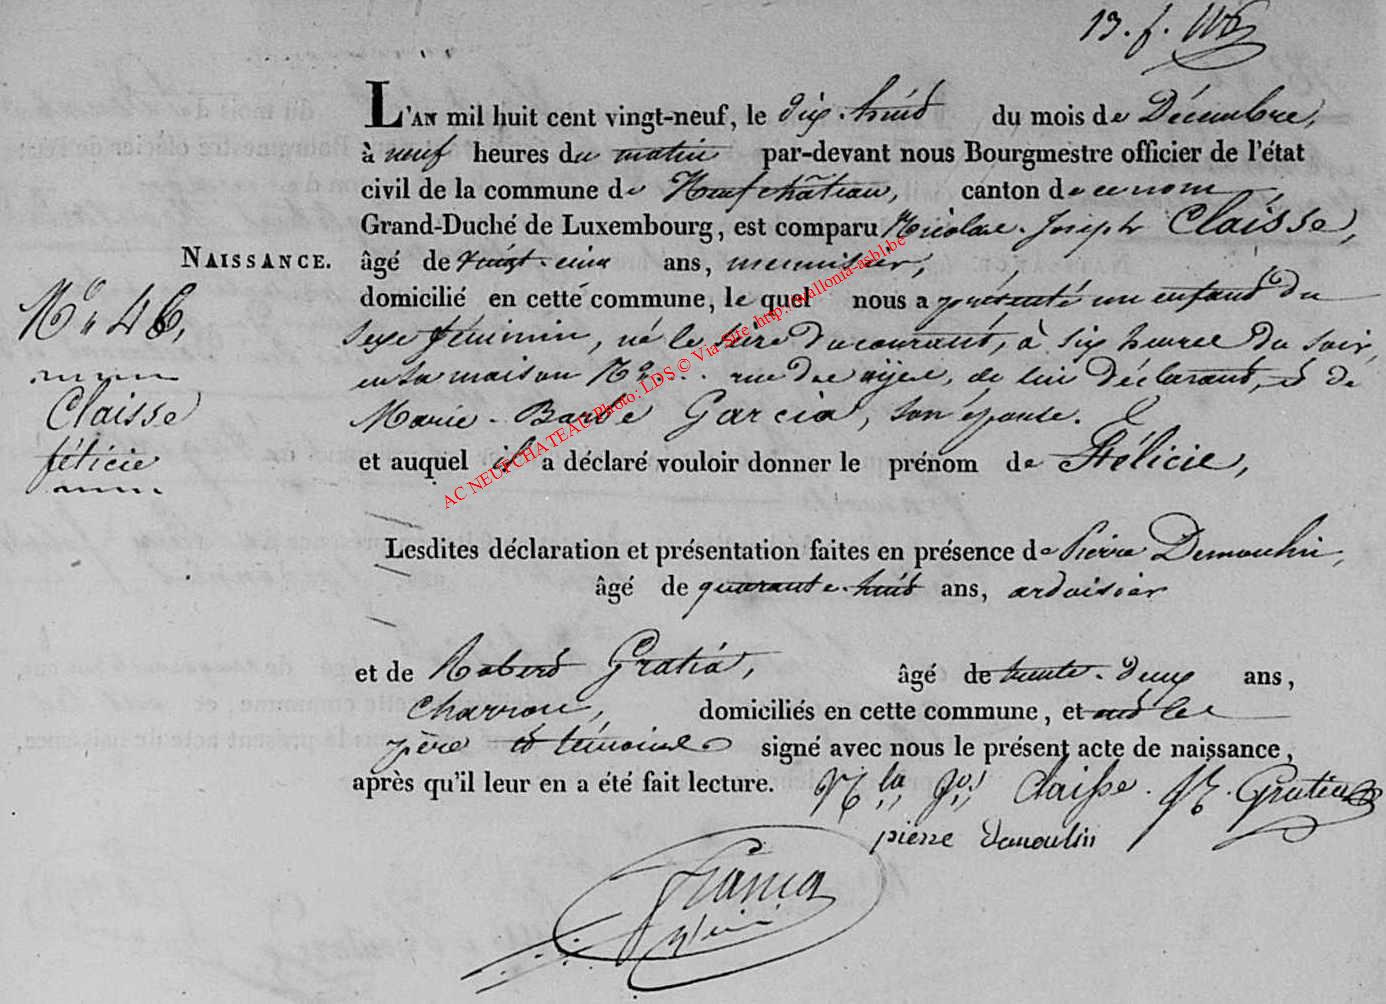 13. f.
L'AN mil huit cent vingt-neuf, le dix-huit du mois de Décembre,
à neuf heures du matin par-devant nous Bourgmestre officier de l'état
civil de la commune de Neufchâteau, canton de ce nom,
Grand-Duché de Luxembourg, est comparu Nicolas-Joseph Claisse,
NAISSANCE. âgé de vingt cinq ans, menuisier,
domicilié en cette commune, le quel nous a présenté un enfant du
sexe féminin, né le seize du courant, à six heures du soir,
en sa maison No... rue de, de lui déclarant, et de
Marie-Barbe Garcia, son épouse.
et auquel il a déclaré vouloir donner le prénom de Félicie,
No 46,
Claisse
félicie
Lesdites déclaration et présentation faites en présence de Pierre Demoulin,
âgé de quarante-huit ans, ardoisier
et de Robert Gratia, âgé de trente-deux ans,
charron, domiciliés en cette commune, et ont les
père et témoins signé avec nous le présent acte de naissance,
après qu'il leur en a été fait lecture. Nlas Jos Claisse. Gratia
pierre demoulin
AC NEUFCHATEAU Photo: LDS © Via Site http://wallonia-asbl.be